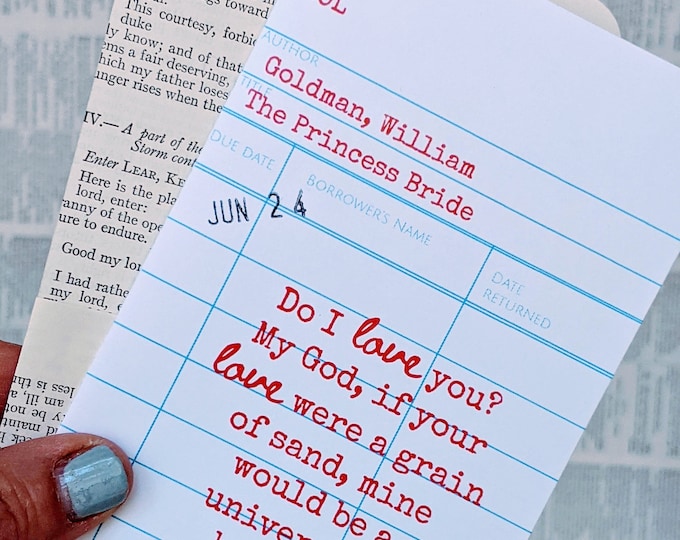 AUTHOR
Goldman, William
TITLE
The Princess Bride
DUE DATE
BORROWER'S NAME
DATE
RETURNED
JUN 24
Do I love you?
My God, if your
love were a grain
of sand, mine
would be a
This courtesy, forbi
duke
ly know; and of that
ems a fair deserving,
which my father loses
IV.—A part of the
Storm cont
Enter LEAR, KE
Here is the pla
lord, enter:
anny of the ope
ure to endure.
Good my lor
I had rathe
my lord, e